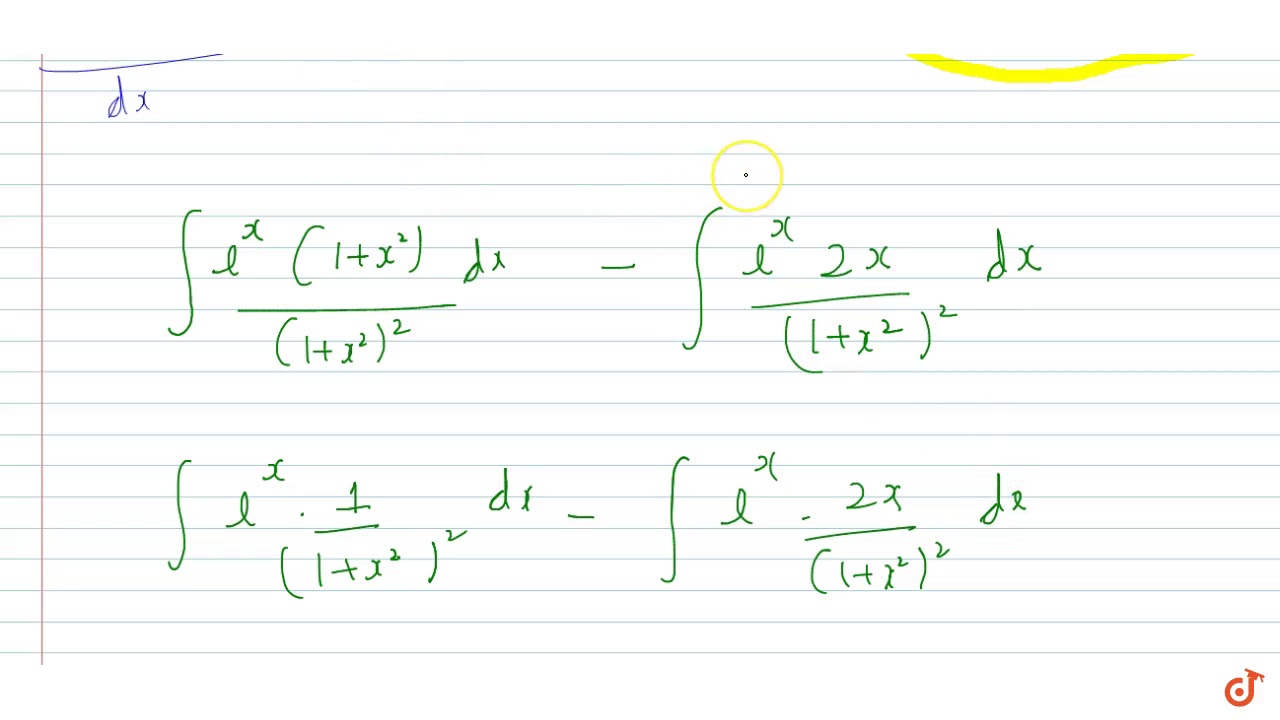 dx
∫ e^x (1+x²)/(1+x²)² dx − ∫ e^x 2x/(1+x²)² dx
∫ e^x · 1/(1+x²)² dx − ∫ e^x · 2x/(1+x²)² dx